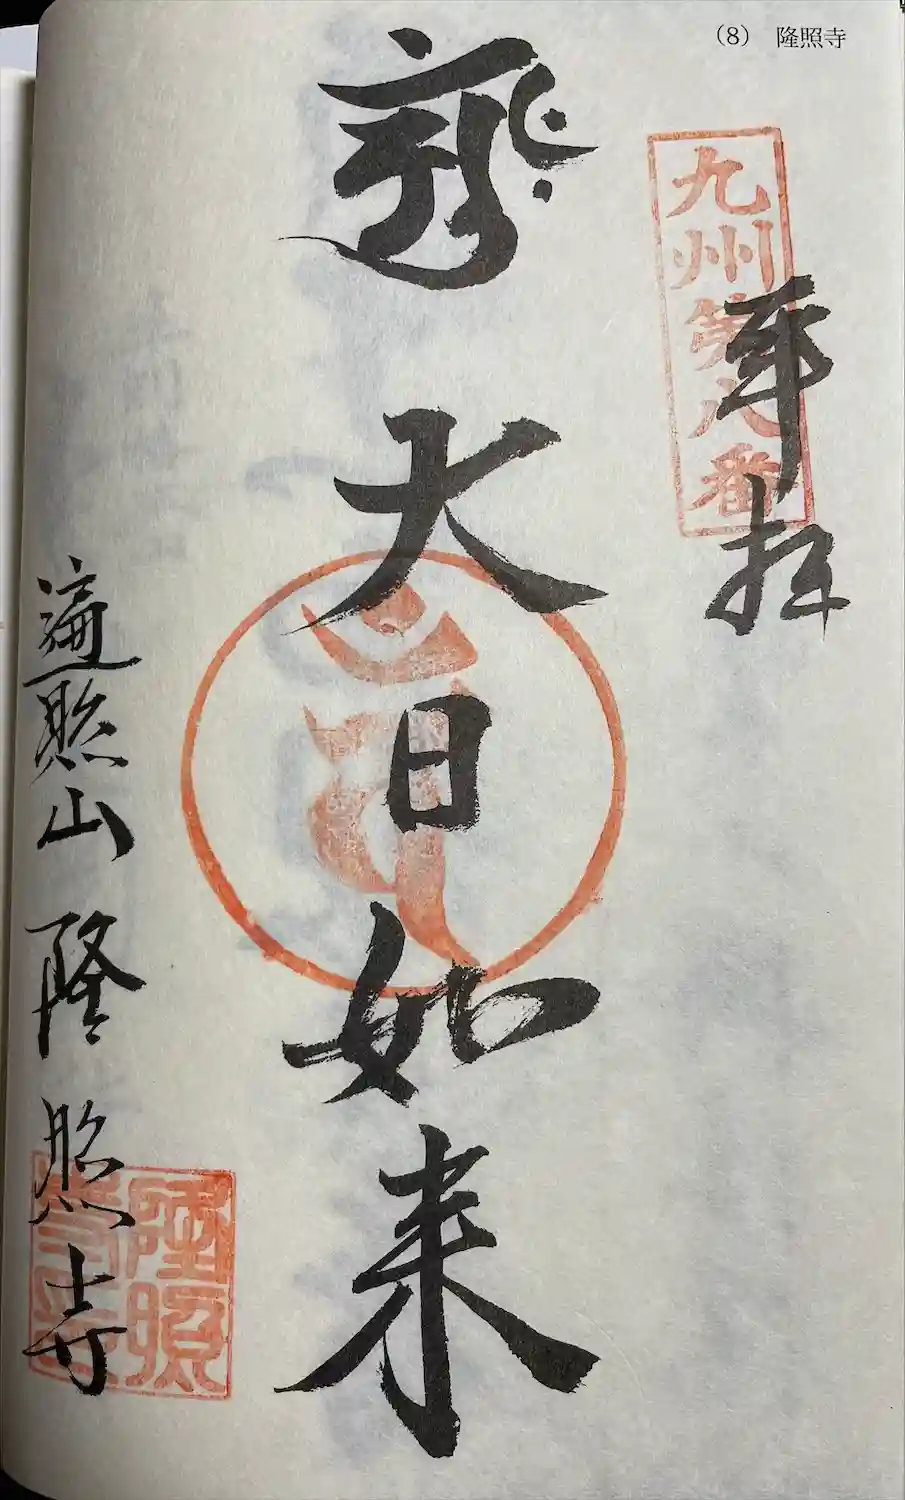 (8) 隆照寺
九州第八番
奉拝
大日如来
遍照山 隆照寺
隆照寺印